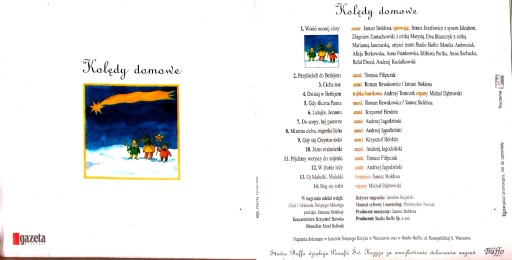 Kolędy domowe
gazeta
Kolędy domowe
1. Wśród nocnej ciszy
aranż. Janusz Stokłosa, śpiewają: Janusz Józefowicz z synem Jakubem,
Zbigniew Zamachowski z córką Marysią, Ewa Błaszczyk z córką
Marianną Janczarską, artyści teatru Studio Buffo: Monika Ambroziak,
Alicja Borkowska, Anna Frankowska, Elżbieta Portka, Anna Sochacka,
Rafał Drozd, Andrzej Kociałkowski
2. Przybieżeli do Betlejem aranż. Tomasz Filipczak
3. Cicha noc aranż. Roman Rewakowicz / Janusz Stokłosa
4. Dzisiaj w Betlejem trąbka barokowa Andrzej Tomczok organy Michał Dąbrowski
5. Gdy śliczna Panna aranż. Roman Rewakowicz / Janusz Stokłosa
6. Lulajże, Jezuniu aranż. Krzysztof Herdzin
7. Do szopy, hej pasterze aranż. Andrzej Jagodziński
8. Mizerna cicha, stajenka licha aranż. Andrzej Jagodziński
9. Gdy się Chrystus rodzi aranż. Krzysztof Herdzin
10. Jezus malusieńki aranż. Andrzej Jagodziński
11. Pójdźmy wszyscy do stajenki aranż. Tomasz Filipczak
12. W żłobie leży aranż. Andrzej Jagodziński
13. Oj Maluśki, Maluśki fortepian Janusz Stokłosa
14. Bóg się rodzi organy Michał Dąbrowski
W nagraniu udział wzięli:
Chór i Orkiestra Świętego Mikołaja
pod dyr. Janusza Stokłosy
Koncertmistrz Krzysztof Bzówka
Menedżer Józef Kolinek
Inżynier nagranka: Jarosław Regulski
Montaż cyfrowy i mastering: Przemysław Nowak
Producent muzyczny: Janusz Stokłosa
Producent: Studio Buffo Sp. z oo.
Nagrania dokonano w kościele Świętego Krzyża w Warszawie oraz w Studio Buffo, ul. Konopnickiej 6, Warszawa
Studio Buffo dziękuje Parafii Św. Krzyża za umożliwienie dokonania nagrań
Buffo
Egzemplarz promocyjny, nie do sprzedaży